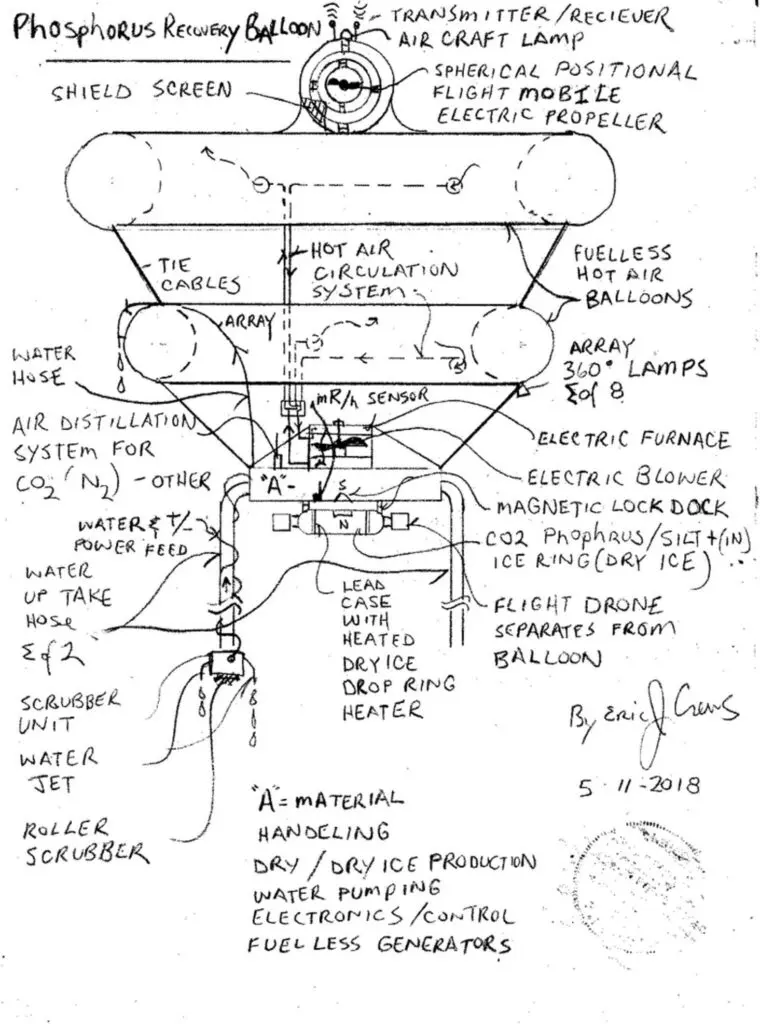 Phosphorus Recovery Balloon
TRANSMITTER/RECIEVER
AIR CRAFT LAMP
SHIELD SCREEN
SPHERICAL POSITIONAL
FLIGHT MOBILE
ELECTRIC PROPELLER
TIE
CABLES
HOT AIR
CIRCULATION
SYSTEM
FUELLESS
HOT AIR
BALLOONS
ARRAY
WATER
HOSE
ARRAY
360° LAMPS
Σ of 8
mR/h SENSOR
AIR DISTILLATION
SYSTEM FOR
CO2 (N2) - OTHER
ELECTRIC FURNACE
ELECTRIC BLOWER
"A"-
S
N
MAGNETIC LOCK DOCK
WATER & +/-
POWER FEED
CO2 PhopHRUS/SILT+(IN)
ICE RING (DRY ICE)
WATER
UP TAKE
HOSE
Σ of 2
LEAD
CASE
WITH
HEATED
DRY ICE
DROP RING
HEATER
FLIGHT DRONE
SEPARATES FROM
BALLOON
SCRUBBER
UNIT
WATER
JET
ROLLER
SCRUBBER
By Eric J Crews
5-11-2018
"A"= MATERIAL
HANDELING
DRY / DRY ICE PRODUCTION
WATER PUMPING
ELECTRONICS/CONTROL
FUELLESS GENERATORS